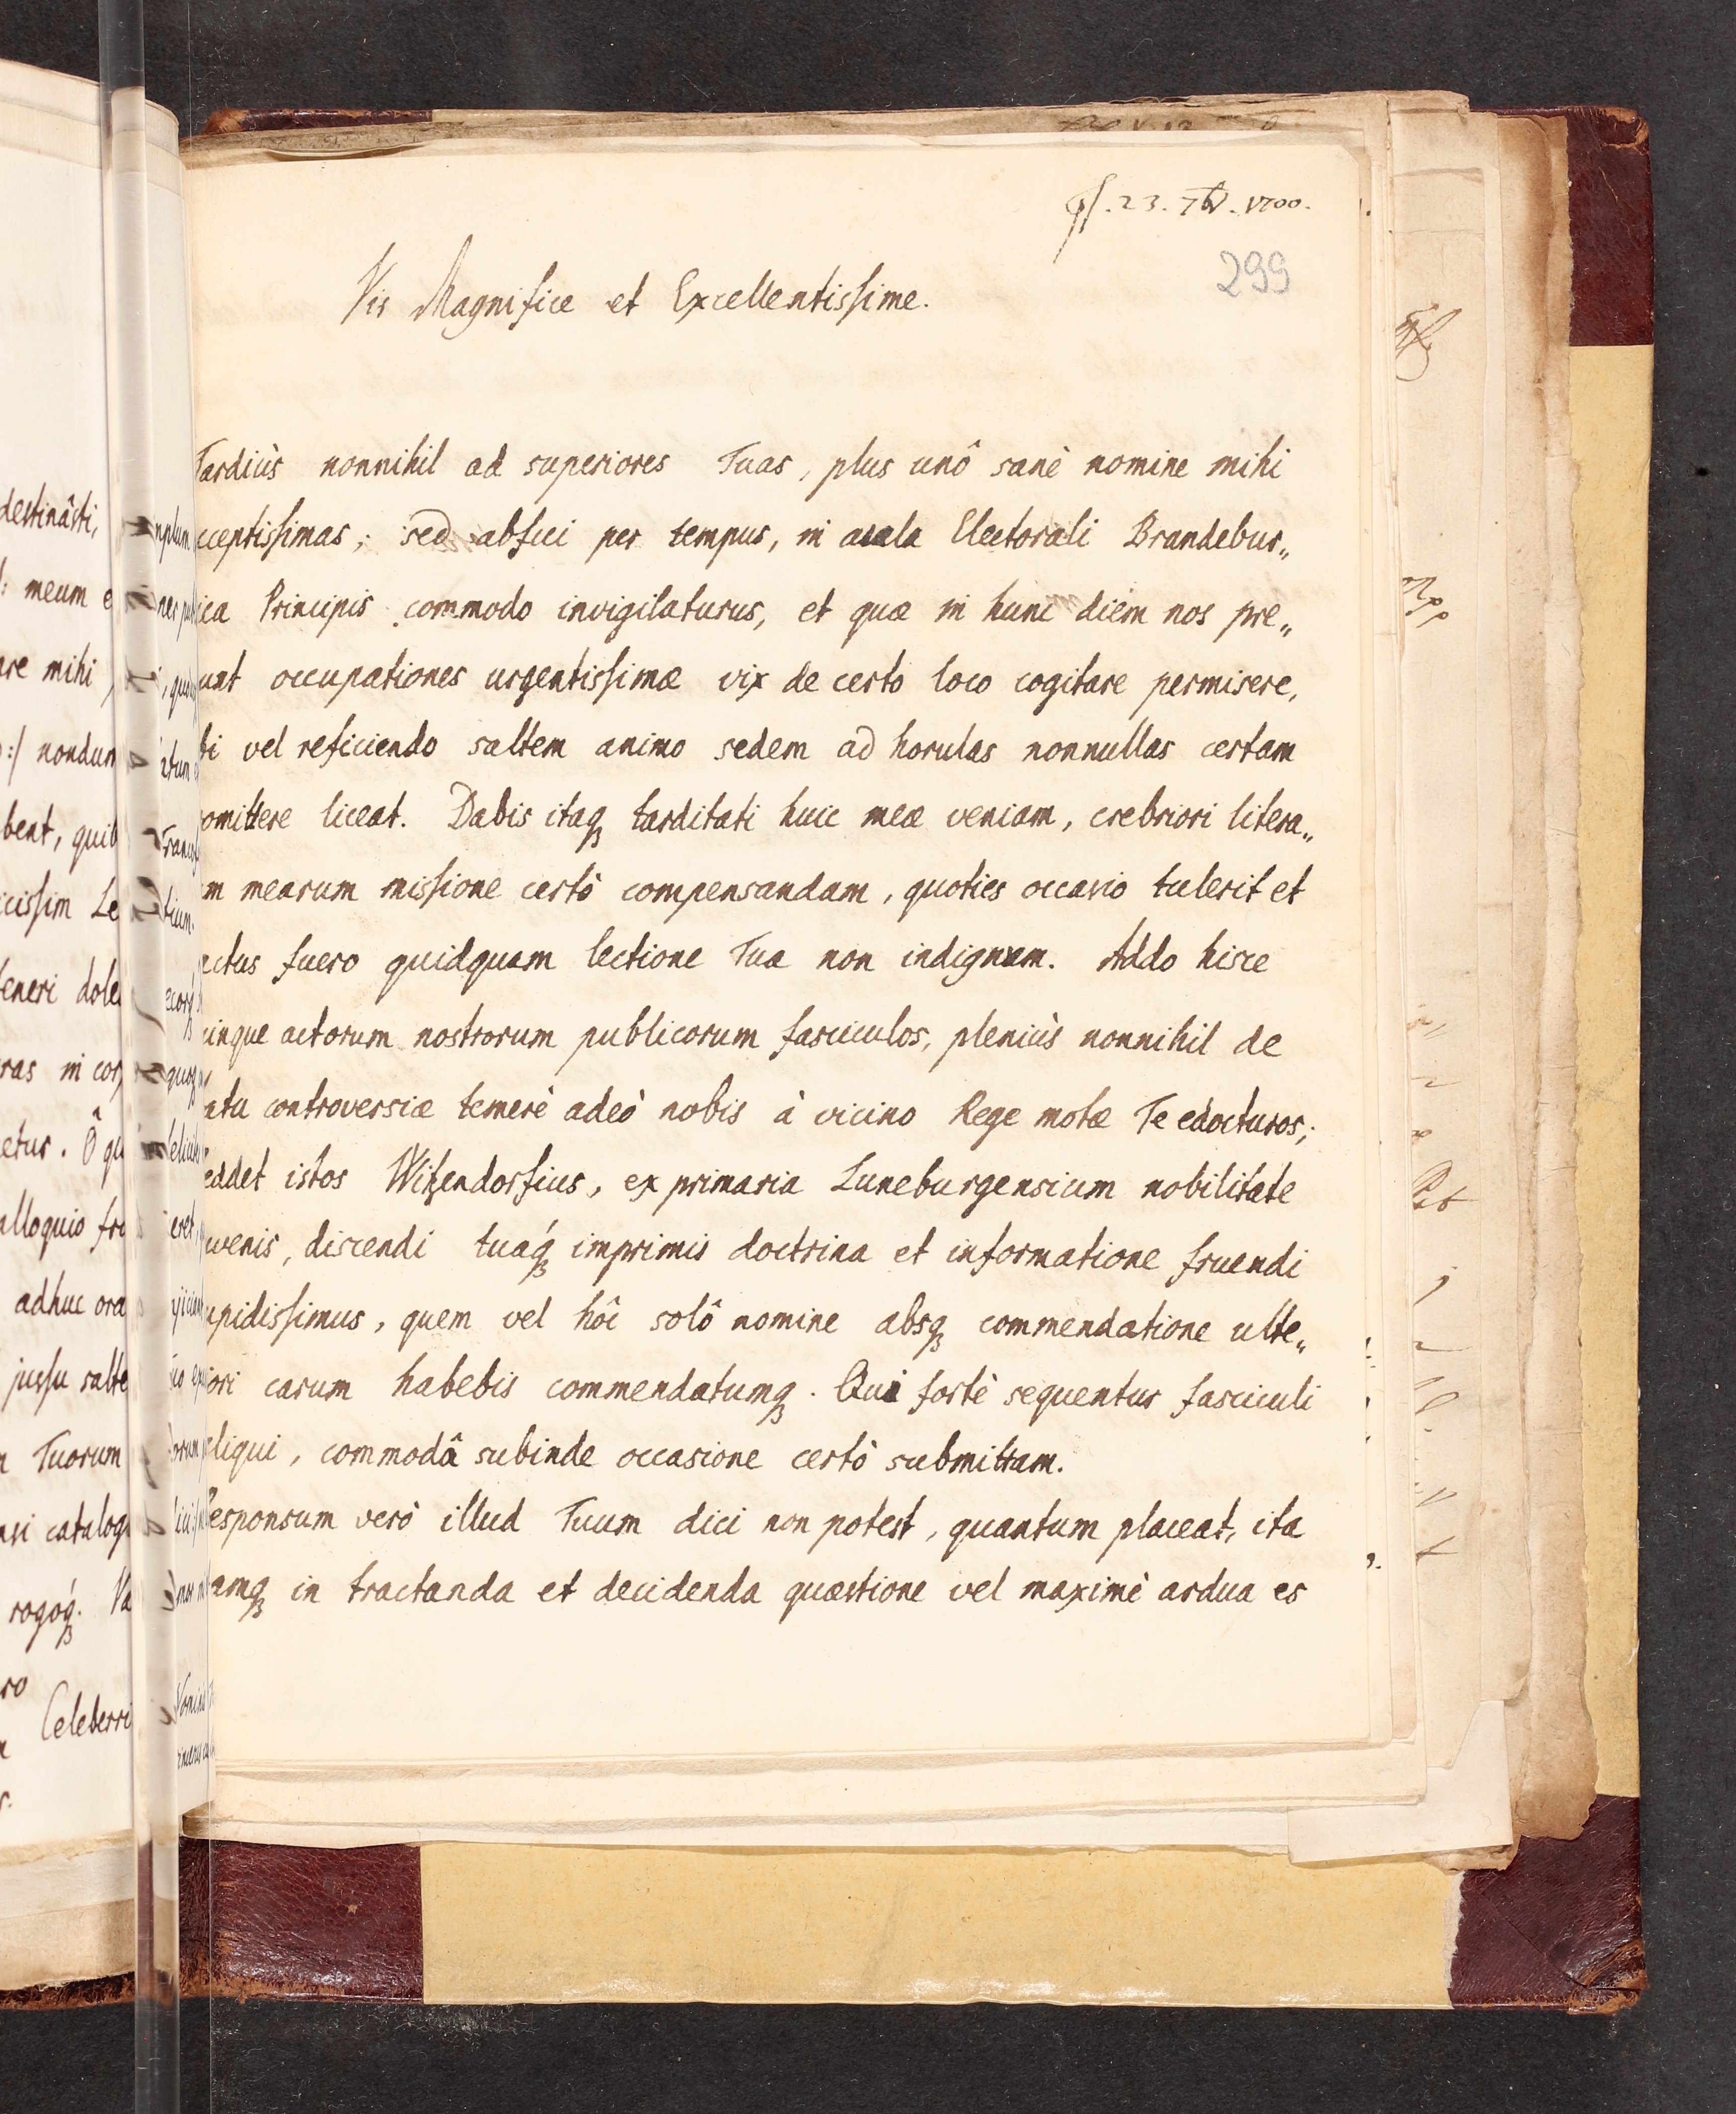 ps. 23. 7br. 1700.
299
Vir Magnifice et Excellentissime.
Tardiùs nonnihil ad superiores Tuas, plus unô sanè nomine mihi
cceptissimas; sed abfui per tempus, in aula Electorali Brandebur„
ica Principis commodo invigilaturus, et quæ in hunc diem nos pre„
unt occupationes urgentissimæ vix de certo loco cogitare permisere,
bi vel reficiendo saltem animo sedem ad horulas nonnullas certam
omittere liceat. Dabis itaq tarditati huic meæ veniam, crebriori litera„
m mearum missione certò compensandam, quoties occasio tulerit et
actus fuero quidquam lectione Tua non indignum. Addo hisce
uinque actorum nostrorum publicorum fasciculos, pleniùs nonnihil de
atu controversiæ temerè adeò nobis à vicino Rege motæ Te edocturos;
eddet istos Witzendorfius, ex primaria Luneburgensium nobilitate
uvenis, discendi tuaq́ imprimis doctrina et informatione fruendi
upidissimus, quem vel hôc solô nomine absq commendatione ulte„
iori carum habebis commendatumq. Qui fortè sequentur fasciculi
eliqui, commodâ subinde occasione certò submittam.
Responsum verò illud Tuum dici non potest, quantum placeat, ita
amq in tractanda et decidenda quæstione vel maximè ardua es
destinâsti,
meum e
are mihi
:/ nondum
bent, quib
icissim Le
teneri dole
ras in cor
etur. Ô qu
alloquio fru
adhuc ora
jussu salte
Tuorum
catalog
rogoq́. Va
Celeberri